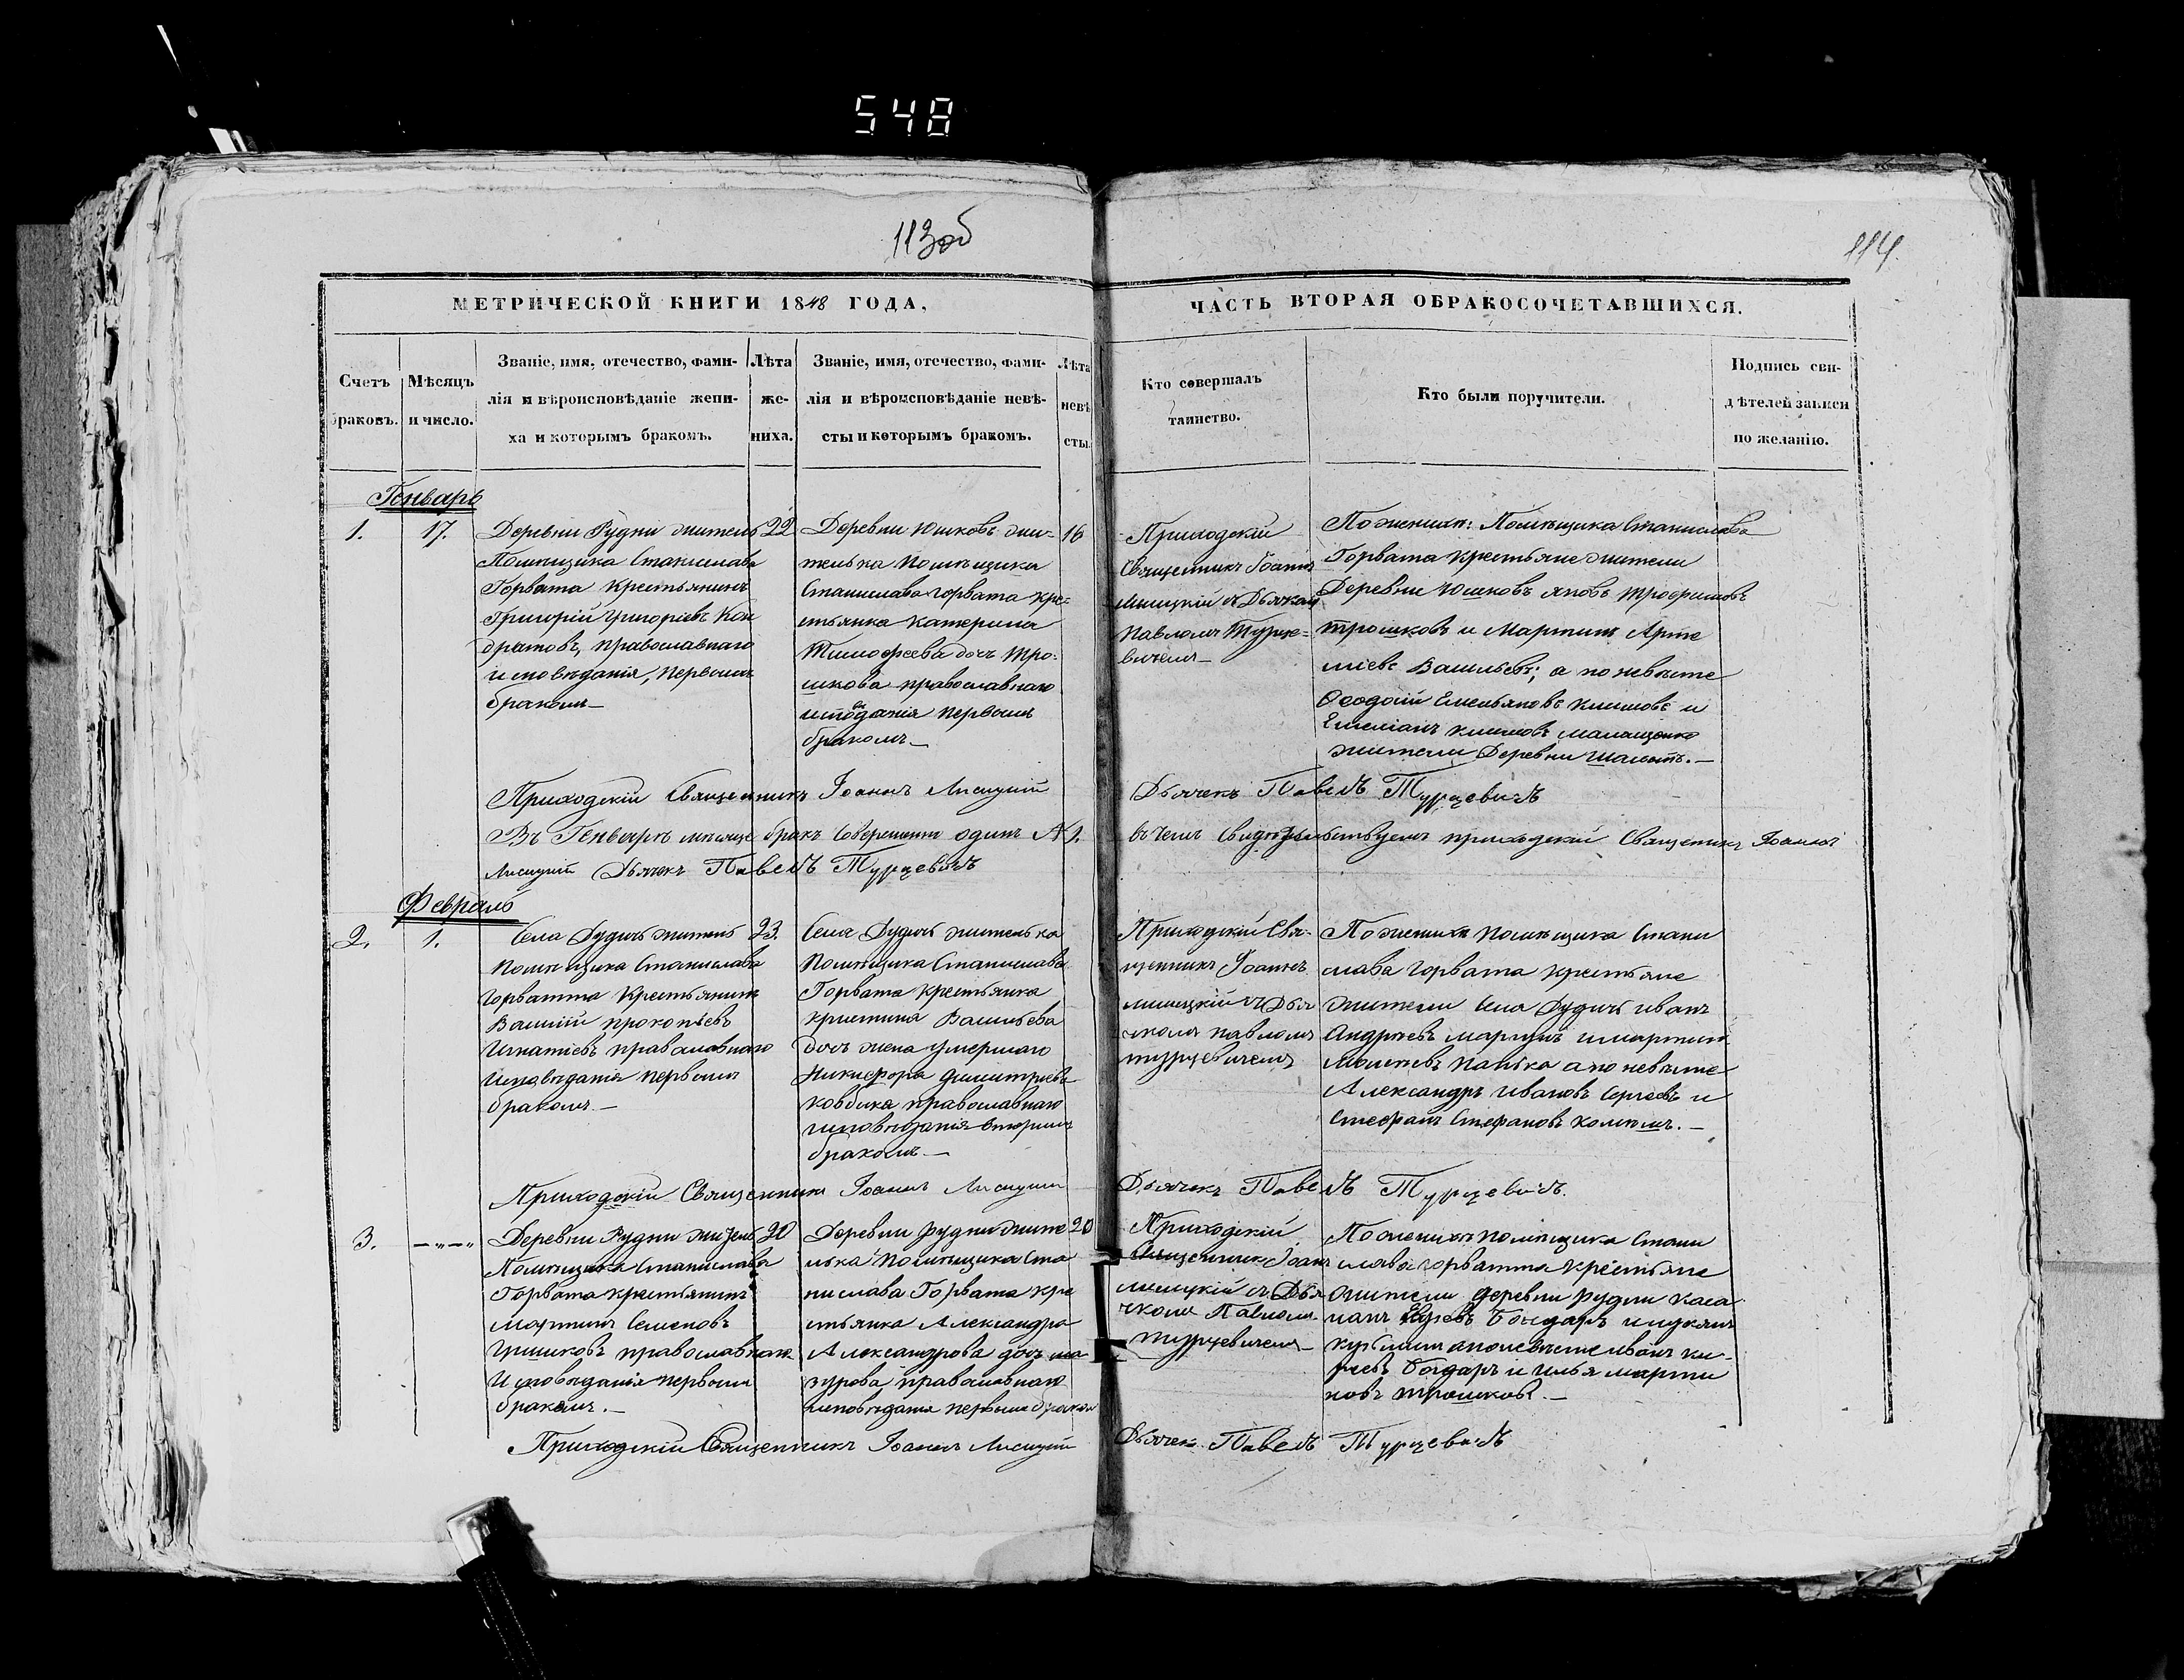 548
113об
114.
МЕТРИЧЕСКОЙ КНИГИ 1848 ГОДА,
ЧАСТЬ ВТОРАЯ ОБРАКОСОЧЕТАВШИХСЯ.
Счетъ
браковъ.
Мѣсяцъ
и число.
Званіе, имя, отечество, фами-
лія и вѣроисповѣданіе жени-
ха и которымъ бракомъ.
Лѣта
же-
ниха.
Званіе, имя, отечество, фами-
лія и вѣроисповѣданіе невѣ-
сты и которымъ бракомъ.
Лѣта
невѣ
сты.
Кто совершалъ
таинство.
Кто были поручители.
Подпись сви-
дѣтелей записи
по желанію.
Генварь
1.
17.
Деревни Рудни житель
Помѣщика Станислава
Горвата Крестьянинъ
Григорій Григоріевъ Кон
дратовъ, православнаго
исповѣданія, первымъ
бракомъ
22
Деревни Юшковъ жи=
телька помѣщика
Станислава Горвата кре=
стьянка Катерина
Тимофеева дочь Тро=
шкова православнаго
первымъ
бракомъ
16
Приходскій
Священникъ Іоаннъ
Лисицкій съ Дьячкомъ
Павломъ Турце=
вичемъ
По женихѣ: Помѣщика Станислава
Горвата крестьяне жители
Деревни Юшковъ Трофимовъ
Трошковъ и Мартинъ Арте
міевъ Васильевъ; а по невѣсте
Феодосій Емельяновъ Климовъ и
Емеліанъ Климовъ
жители Деревни
Приходскій Священникъ Іоаннъ Лисицкій
Дьячекъ Павелъ Турцевичъ
Въ Генварѣ мѣсяце бракъ Совершенъ одинъ №1.
въ чемъ Свидѣтельствуемъ приходскій Священникъ Іоаннъ
Лисицкій Дьячекъ Павелъ Турцевичъ
Февраль
2.
1.
Села Дудичъ житель
Помѣщика Станислава
Горватта Крестьянинъ
Василій Прокопьевъ
Игнатіевъ православнаго
Исповѣданія первымъ
бракомъ.
23.
Села Дудичъ жителька
Помѣщика Станислава
Горвата крестьянка
Кристина Васильева
дочь жена умершаго
Никифора Димитріева
православнаго
исповѣданія вторымъ
бракомъ
Приходскій Свя-
щенникъ Іоаннъ
Лисицкій съ Дья
чкомъ Павломъ
Турцевичемъ
По женихѣ помѣщика Стани
слава Горвата крестьяне
жители Села Дудичъ Иванъ
Андреевъ и Мартинъ
а по невѣсте
Александръ Ивановъ Сергеевъ и
Стефанъ Стефановъ
Приходскій Священникъ Іоаннъ Лисицкій
Дьячекъ Павелъ Турцевичъ.
3.
Деревни Рудни житель
Помѣщика Станислава
Горвата крестьянинъ
Мартинъ Семеновъ
Гришковъ православнаго
Исповѣданія первымъ
бракомъ.
20
Деревни Рудни жите
лька Помѣщика Ста
нислава Горвата кре
стьянка Александра
Александрова дочь ма
зурова православнаго
исповѣданія первымъ браком
20
Приходскій
Священникъ Іоанн
Лисицкій съ Дья
чкомъ Павломъ
Турцевичемъ
По женихѣ помѣщика Стани
слава Горватта Крестьяне
жители деревни Рудни Каса
Бондаръ и
а по невѣсте Иванъ Ки-
реевъ Бондаръ и Илья Марти
новъ Трошковъ.
Приходскій Священникъ Іоаннъ Лисицкій
Дьячек Павелъ Турцевичъ